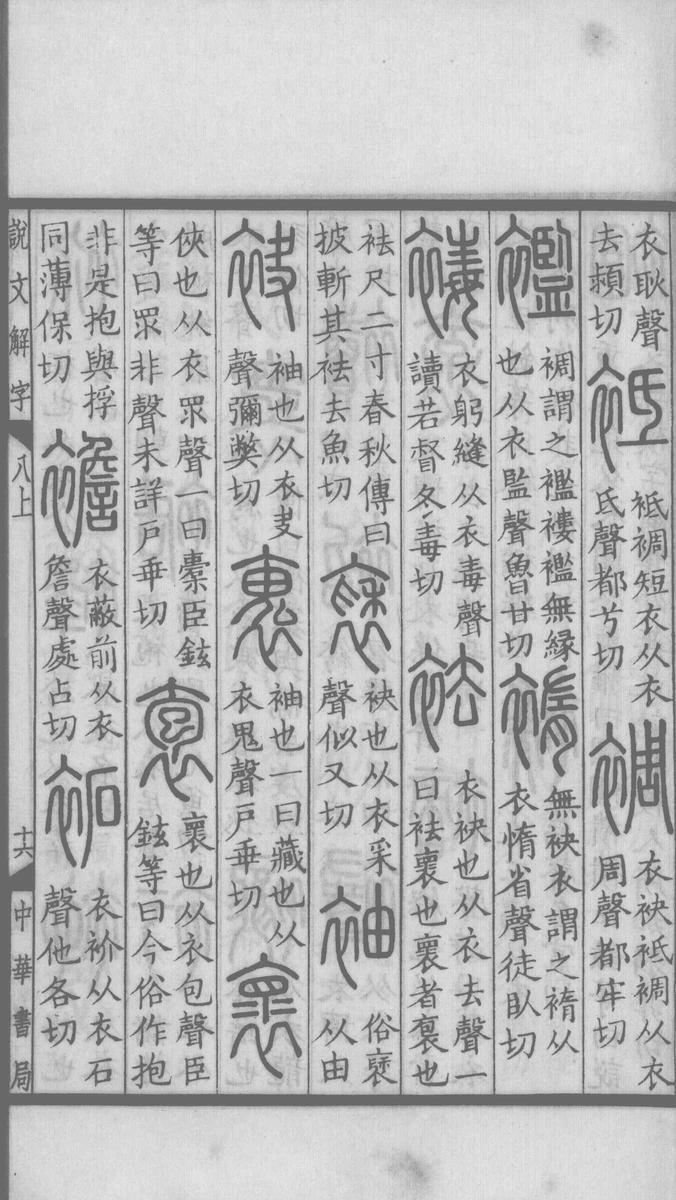 衣耿聲去熲切袛袛裯短衣从衣氐聲都兮切裯衣袂袛裯从衣周聲都牢切
襤裯謂之襤褸襤無緣也从衣監聲魯甘切䙐無袂衣謂之䙐从衣惰省聲徒臥切
𧛔衣躬縫从衣毒聲讀若督冬毒切袪衣袂也从衣去聲一曰袪褱也褱者袌也
袪尺二寸春秋傳曰披斬其袪去魚切褎袂也从衣采聲似又切袖俗褎从由
袂袖也从衣夬聲彌弊切褢袖也一曰藏也从衣鬼聲戶乖切褱
俠也从衣眔聲一曰橐臣鉉等曰眔非聲未詳戶乖切袌褱也从衣包聲臣鉉等曰今俗作抱
非是抱與捊同薄保切襜衣蔽前从衣詹聲處占切袥衣衸从衣石聲他各切
說文解字 八上 十六 中華書局